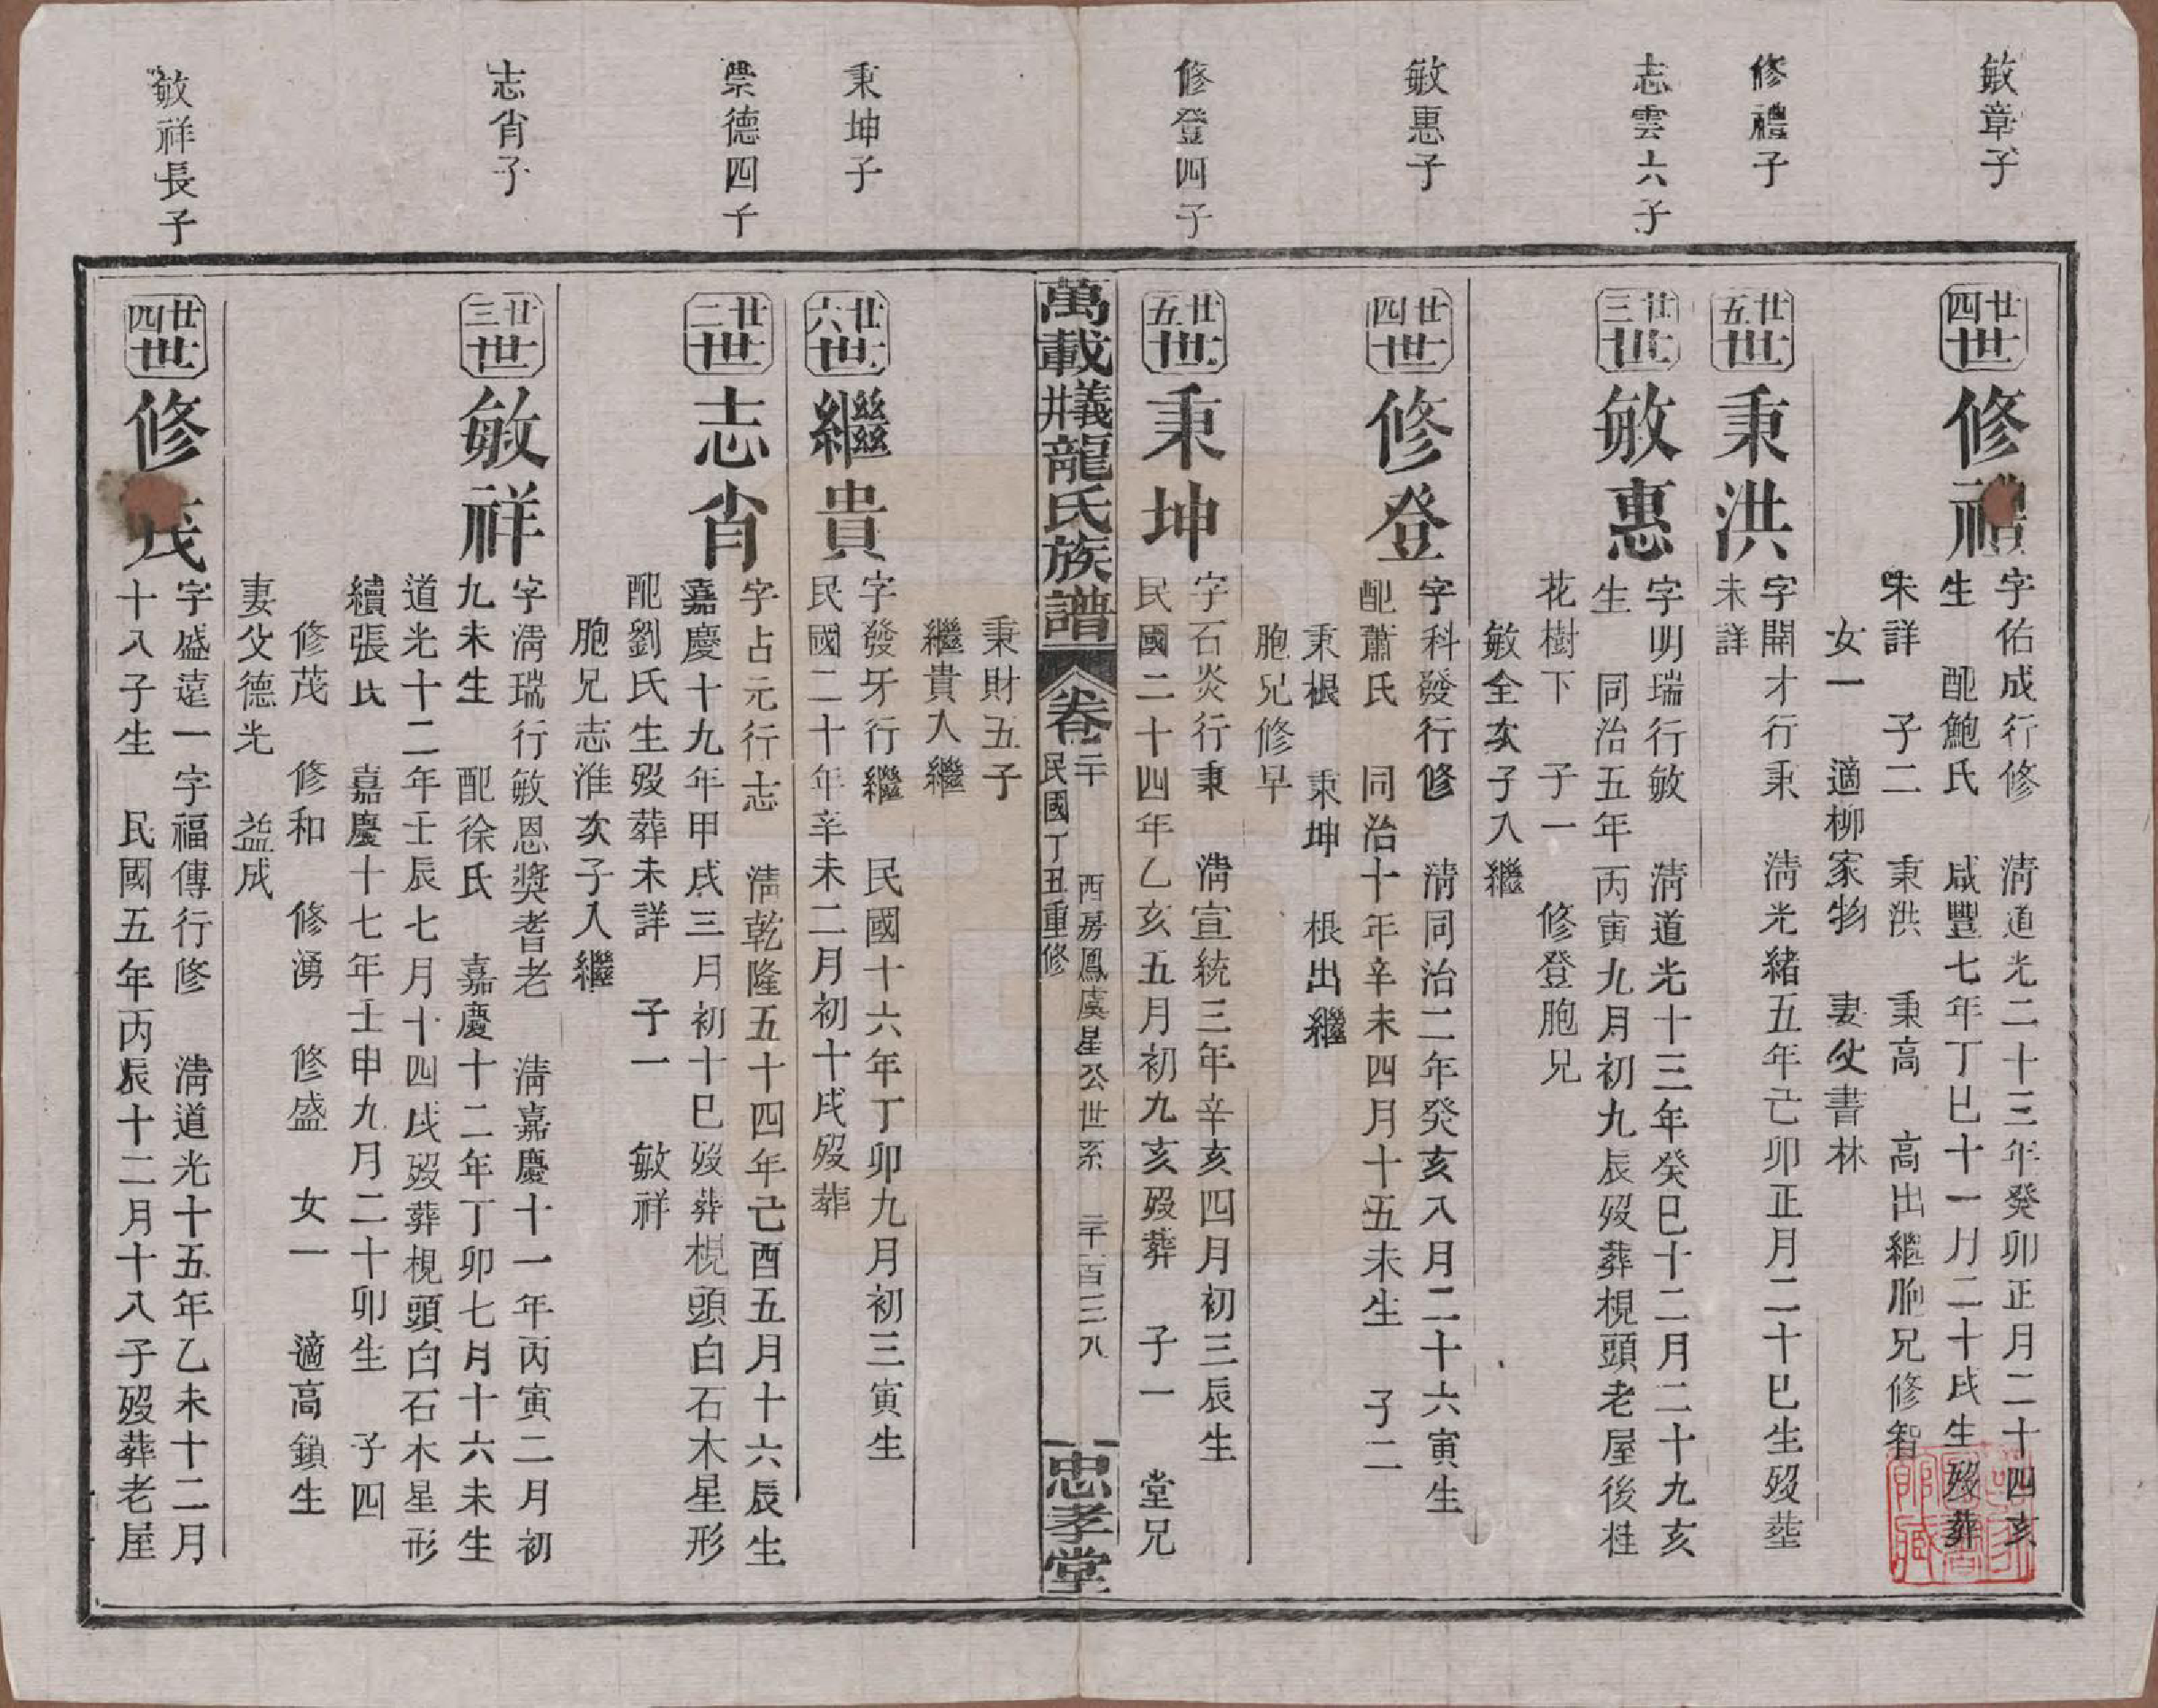 敏章子
廿四世
修禮
字佑成行修 淸道光二十三年癸卯正月二十四亥
生 配鮑氏 咸豐七年丁巳十一月二十戌生歿葬
未詳 子二 秉洪 秉高 高出繼胞兄修智
女一 適柳家物 妻父書林
修禮子
廿五世
秉洪
字開才行秉 淸光緒五年己卯正月二十巳生歿葬
未詳
志雲六子
廿三世
敏惠
字明瑞行敏 淸道光十三年癸巳十二月二十九亥
生 同治五年丙寅九月初九辰歿葬梘頭老屋後
花樹下 子一 修登胞兄
敏全次子入繼
敏惠子
廿四世
修登
字科發行修 淸同治二年癸亥八月二十六寅生
配蕭氏 同治十年辛未四月十五未生 子二
秉根 秉坤 根出繼
胞兄修早
修登四子
廿五世
秉坤
字石炎行秉 淸宣統三年辛亥四月初三辰生
民國二十四年乙亥五月初九亥歿葬 子一 堂兄
秉財五子
繼貴入繼
萬載井義龍氏族譜 卷二十 民國丁丑重修 西房鳳虞星公世系 二千一百三八 忠孝堂
秉坤子
廿六世
繼貴
字發牙行繼 民國十六年丁卯九月初三寅生
民國二十年辛未二月初十戌歿葬
崇德四子
廿二世
志肯
字占元行志 淸乾隆五十四年己酉五月十六辰生
嘉慶十九年甲戌三月初十巳歿葬梘頭白石木星形
配劉氏生歿葬未詳 子一 敏祥
胞兄志淮次子入繼
志肯子
廿三世
敏祥
字淸瑞行敏恩獎耆老 淸嘉慶十一年丙寅二月初
九未生 配徐氏 嘉慶十二年丁卯七月十六未生
道光十二年壬辰七月十四戌歿葬梘頭白石木星形
續張氏 嘉慶十七年壬申九月二十卯生 子四
修茂 修和 修湧 修盛 女一 適高鎖生
妻父德光 益成
敏祥長子
廿四世
修茂
字盛遠一字福傳行修 淸道光十五年乙未十二月
十八子生 民國五年丙辰十二月十八子歿葬老屋